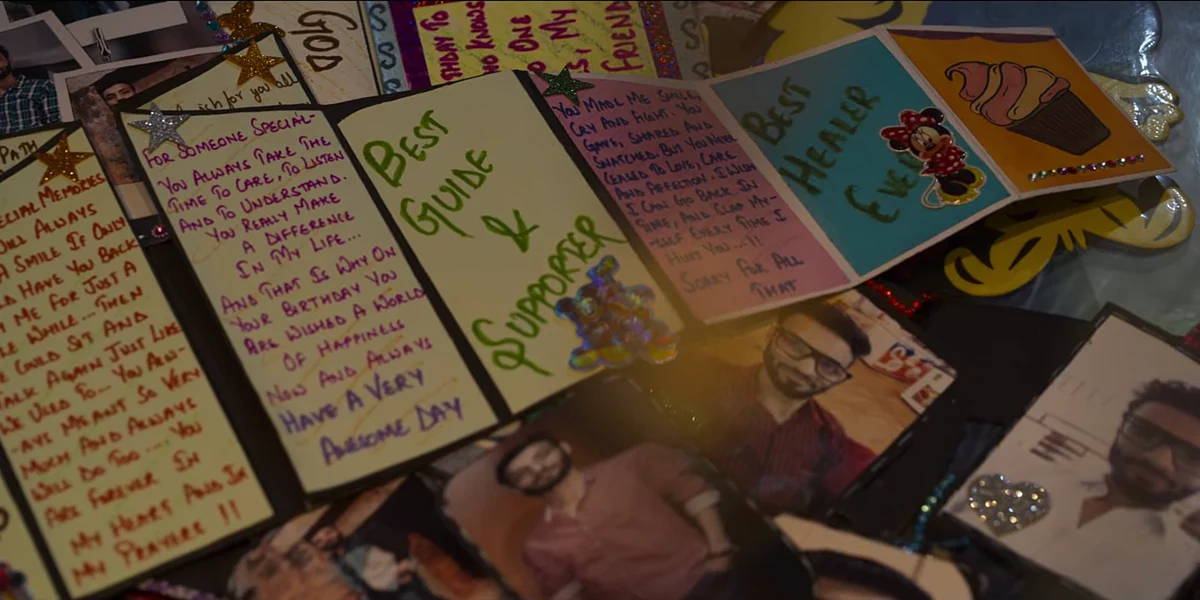 GOD
THDAY TO
WHO KNOWS
NO ONE
IS MY
FRIEND
wish for you all
PATH
ECIAL MEMORIES
WILL ALWAYS
A SMILE IF ONLY
LD HAVE YOU BACK
H ME FOR JUST A
LE WHILE... THEN
E COULD SIT AND
TALK AGAIN JUST LIKE
WE USED TO... YOU ALW-
-AYS MEANT SO VERY
MUCH AND ALWAYS
WILL DO TOO.... YOU
ARE FOREVER IN
MY HEART AND IN
MY PRAYERS !!
FOR SOMEONE SPECIAL-
YOU ALWAYS TAKE THE
TIME TO CARE, TO LISTEN
AND TO UNDERSTAND.
YOU REALLY MAKE
A DIFFERENCE
IN MY LIFE...
AND THAT IS WHY ON
YOUR BIRTHDAY YOU
ARE WISHED A WORLD
OF HAPPINESS
NOW AND ALWAYS
HAVE A VERY
AWESOME DAY
BEST
GUIDE
&
SUPPORTER
YOU MADE ME SMILE,
CRY AND FIGHT. YOU
GAVE, SHARED AND
SNATCHED. BUT YOU NEVER
CEASED TO LOVE, CARE
AND AFFECTION. I WISH
I CAN GO BACK IN
TIME, AND SLAP MY-
-SELF EVERY TIME I
HURT YOU...!!
SORRY FOR ALL
THAT
BEST
HEALER
EVER